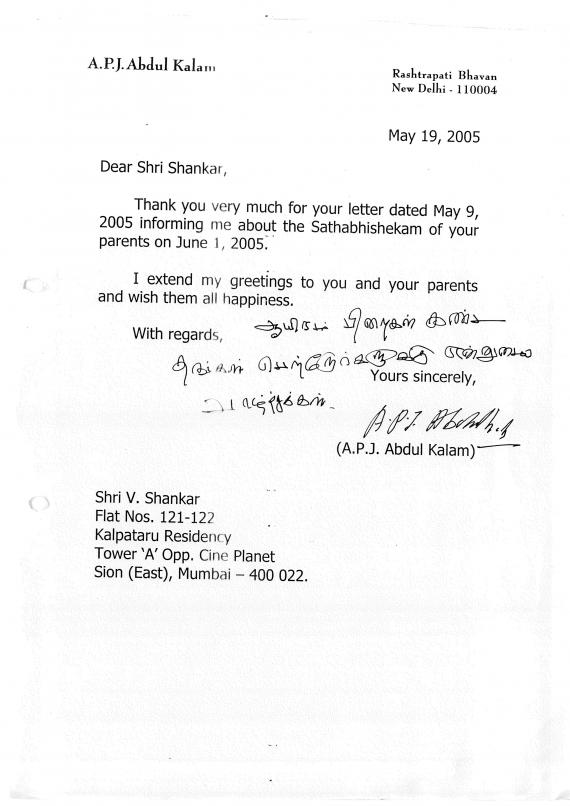 A.P.J. Abdul Kalam
Rashtrapati Bhavan
New Delhi - 110004
May 19, 2005
Dear Shri Shankar,
Thank you very much for your letter dated May 9,
2005 informing me about the Sathabhishekam of your
parents on June 1, 2005.
I extend my greetings to you and your parents
and wish them all happiness.
ஆயிரம் பிறைகள் கண்ட
With regards,
தங்கள் பெற்றோர்களுக்கு என்னுடைய
Yours sincerely,
வாழ்த்துக்கள்.
A.P.J. Abdul Kalam
(A.P.J. Abdul Kalam)
Shri V. Shankar
Flat Nos. 121-122
Kalpataru Residency
Tower ‘A’ Opp. Cine Planet
Sion (East), Mumbai – 400 022.